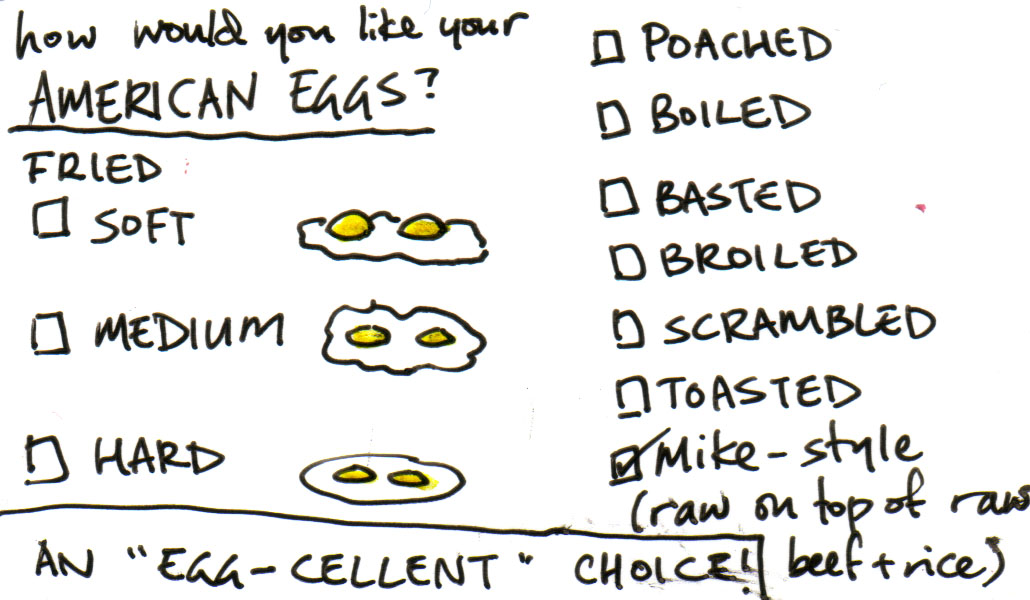 how would you like your
AMERICAN EGGS?
FRIED
SOFT
MEDIUM
HARD
POACHED
BOILED
BASTED
BROILED
SCRAMBLED
TOASTED
Mike-style
(raw on top of raw
beef + rice)
AN "EGG-CELLENT" CHOICE!